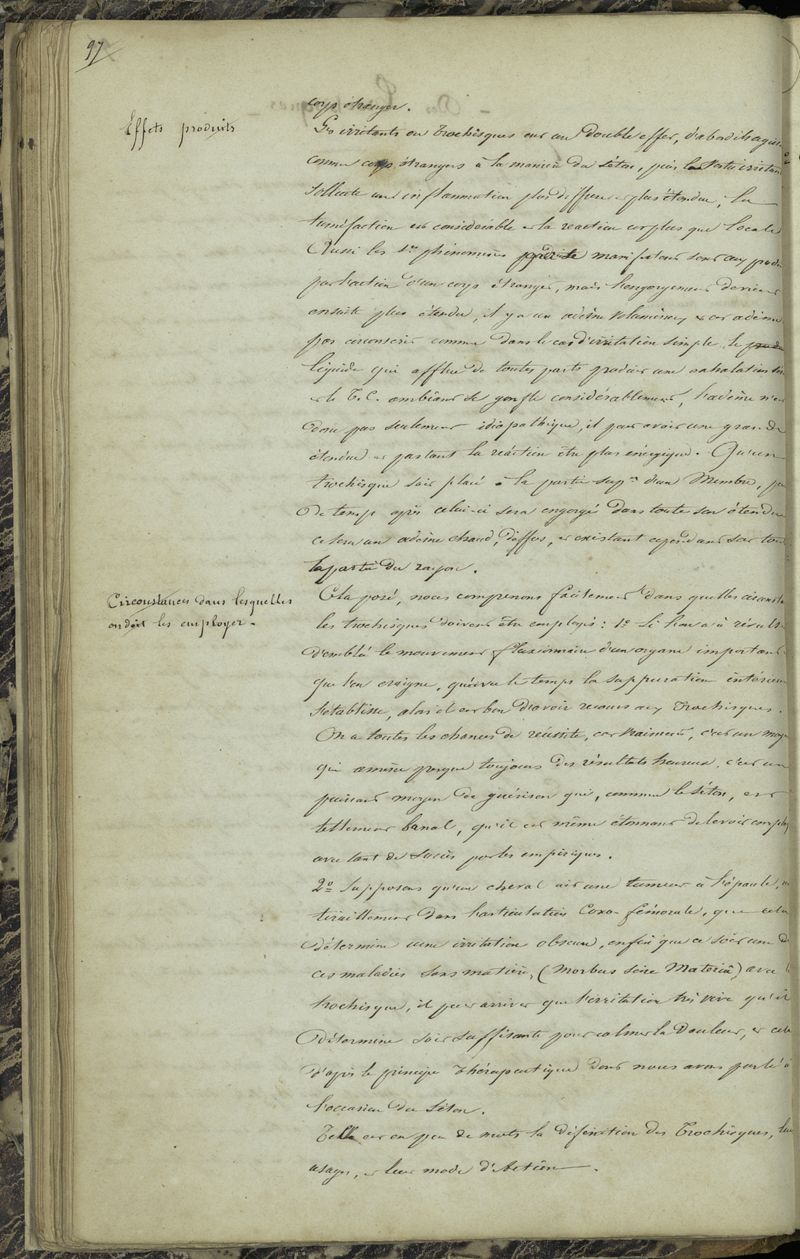 97
corps étranger.
Effets produits
Les irritants ou trochisques ont un double effet, d'abord ils agissent
comme corps étrangers à la manière du Séton, puis la partie irritante
Sollicite une inflammation plus diffuse et plus étendue, la
tuméfaction est considérable et la réaction est plus que locale
Aussi les 1ers phénomènes manifestent sont aux prod
par l'action d'un corps étranger, mais l'engorgement devient
ensuite plus étendu, il y a un œdème volumineux et cet œdème
pas circonscrit comme dans le cas d'irritation simple, le
liquide qui afflue de toutes parts produit une exhalation
et le T. C. ambiant se gonfle considérablement, l'œdème n'est
donc pas seulement idiopathique, il peut avoir une grande
étendue et partant la réaction être plus énergique. Qu'un
trochisque soit placé à la partie supre d'un Membre, peu
de temps après celui-ci sera engorgé dans toute son étendue
ce sera un œdème chaud, diffus, et existant cependant sur toute
la partie du rayon.
Circonstances dans lesquelles
on doit les employer.
Cela posé, nous comprenons facilement dans quelles circonsta
les trochisques doivent être employés : 1o Si l'on a à révulser
d'emblée le mouvement fluxionnaire d'un organe important
que l'on craigne, qu'avec le temps la suppuration intérieure
s'établisse, alors il est bon d'avoir recours aux trochisques.
On a toutes les chances de réussite, car vraiment, c'est un moyen
qui amène presque toujours des résultats heureux, c'est un
puissant moyen de guérison qui, comme le Séton, est
tellement banal, qu'il est même étonnant de le voir employ
avec tant de succès par les empiriques.
2o Supposons qu'un cheval ait une tumeur à l'épaule, un
tiraillement dans l'articulation Coxo-fémorale, que cela
détermine une irritation obscure, enfin que ce soit une de
ces maladies sans matière, (Morbus Sine Materiâ) avec le
trochisque, il peut arriver que l'irritation très vive qu'il
détermine soit suffisante pour calmer la douleur, et cela
d'après le principe thérapeutique dont nous avons parlé à
l'occasion du Séton.
Telle est en peu de mots la définition des Trochisques, leurs
usages, et leur mode d'Action.